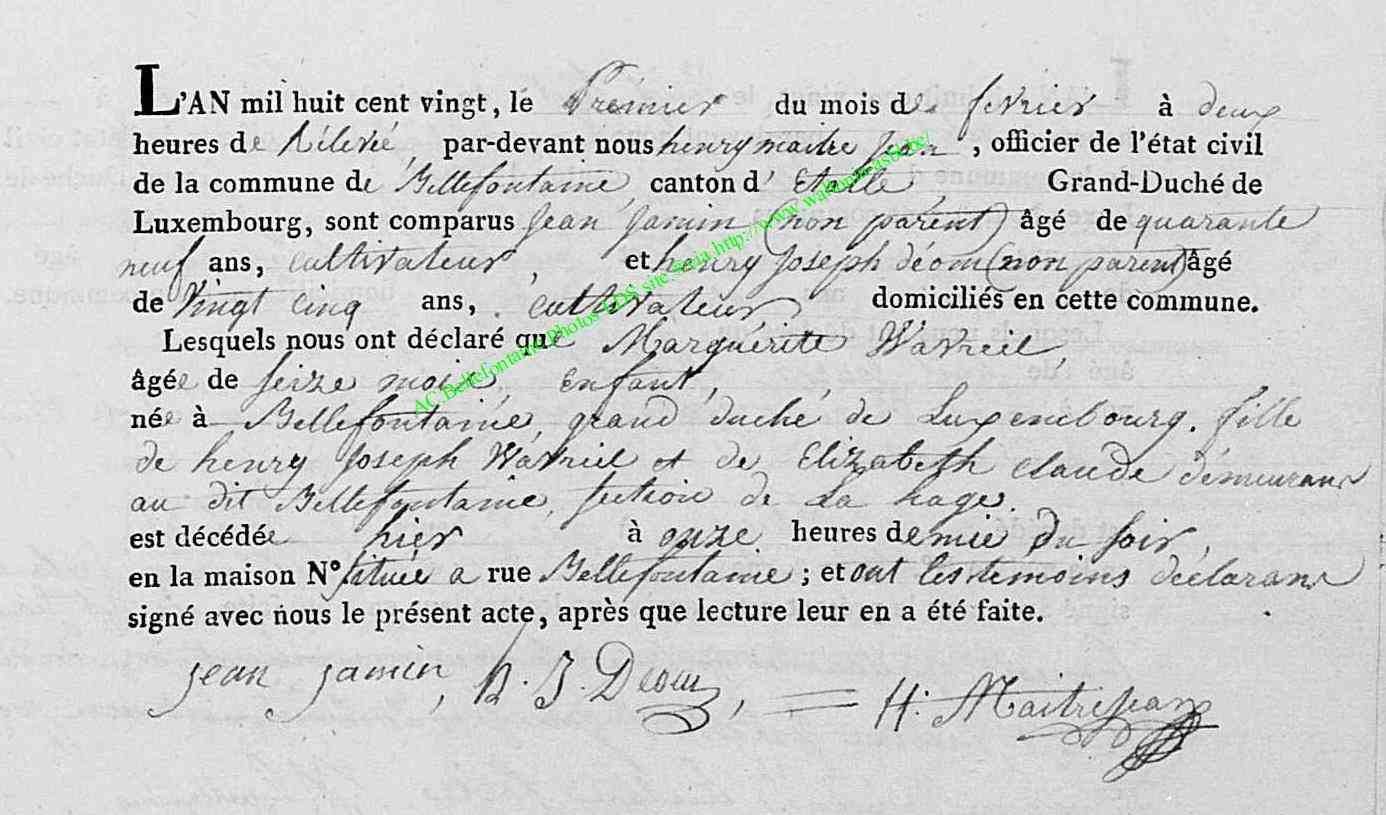 L'AN mil huit cent vingt, le Premier du mois de fevrier à deux
heures de Rélevé, par-devant nous henry maitre Jean, officier de l'état civil
de la commune de Bellefontaine, canton d'Etalle, Grand-Duché de
Luxembourg, sont comparus Jean Jamin (non parent) âgé de quarante
neuf ans, cultivateur, et henry Joseph déom (non parent) âgé
de Vingt cinq ans, cultivateur, domiciliés en cette commune.
Lesquels nous ont déclaré que Marguérite Wavreil,
âgée de seize mois, enfant,
née à Bellefontaine, grand duché de Luxembourg. fille
de henry Joseph Wavriel et de Elizabeth claude démeurans
au dit Bellefontaine, section de La hage.
est décédée hier à onze heures demie du soir,
en la maison N° située a rue Bellefontaine ; et ont les temoins déclarans
signé avec nous le présent acte, après que lecture leur en a été faite.
jean jamin, h. J. Deom, H. Maitrejean
AC Bellefontaine Photos LDS site Scaia http://www.wallonia.be/